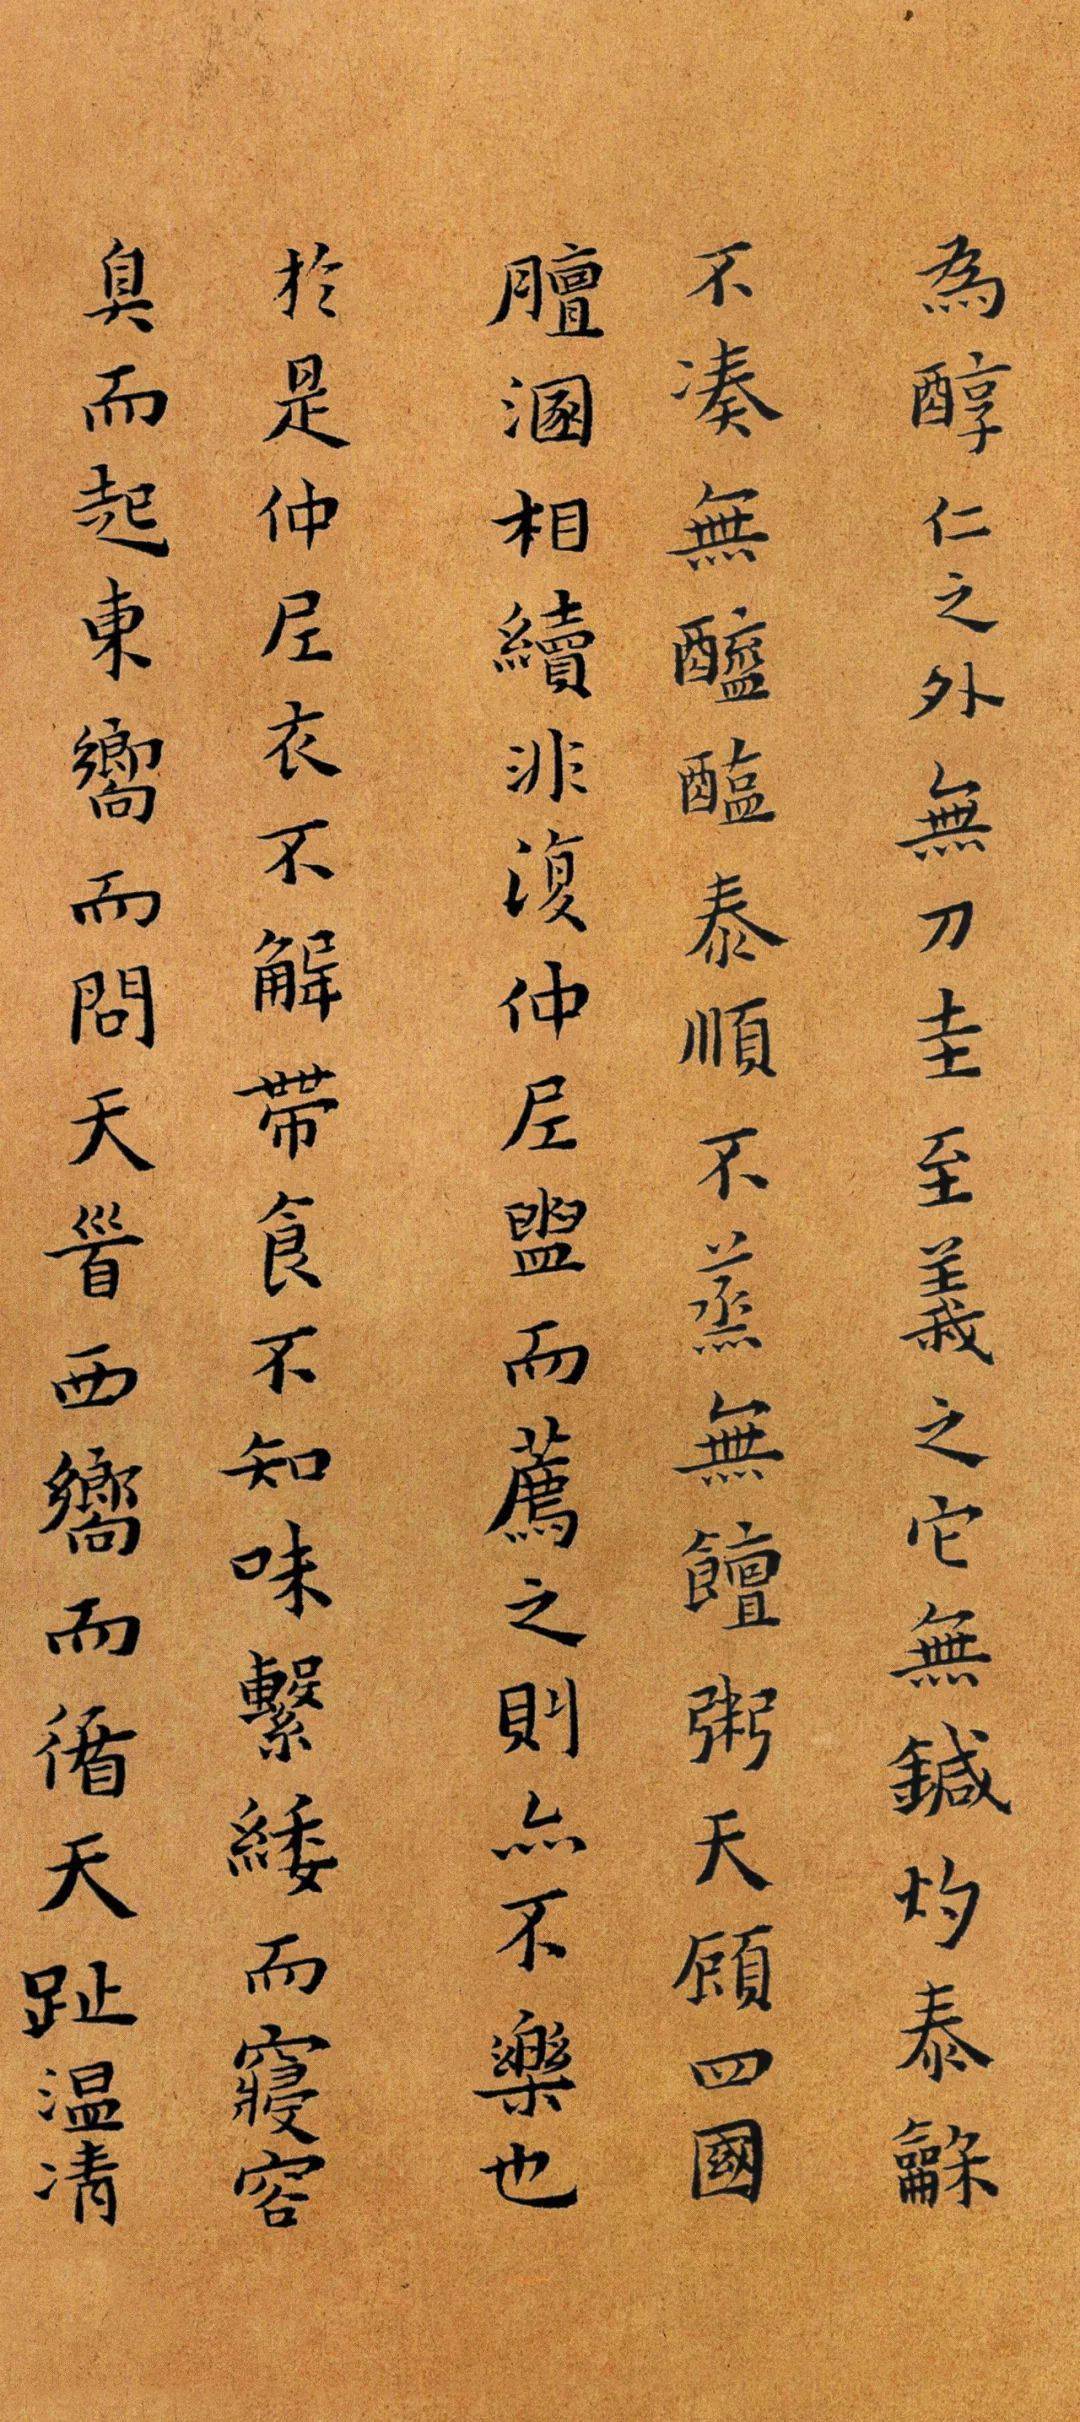 為醇仁之外無刀圭至義之它無鍼灼泰龢
不凑無醯醢泰順不蒸無饘粥天顧四國
膻溷相續非復仲尼盥而薦之則亦不樂也
於是仲尼衣不解帶食不知味繫緌而寢容
臭而起東嚮而問天晉西嚮而循天趾温凊